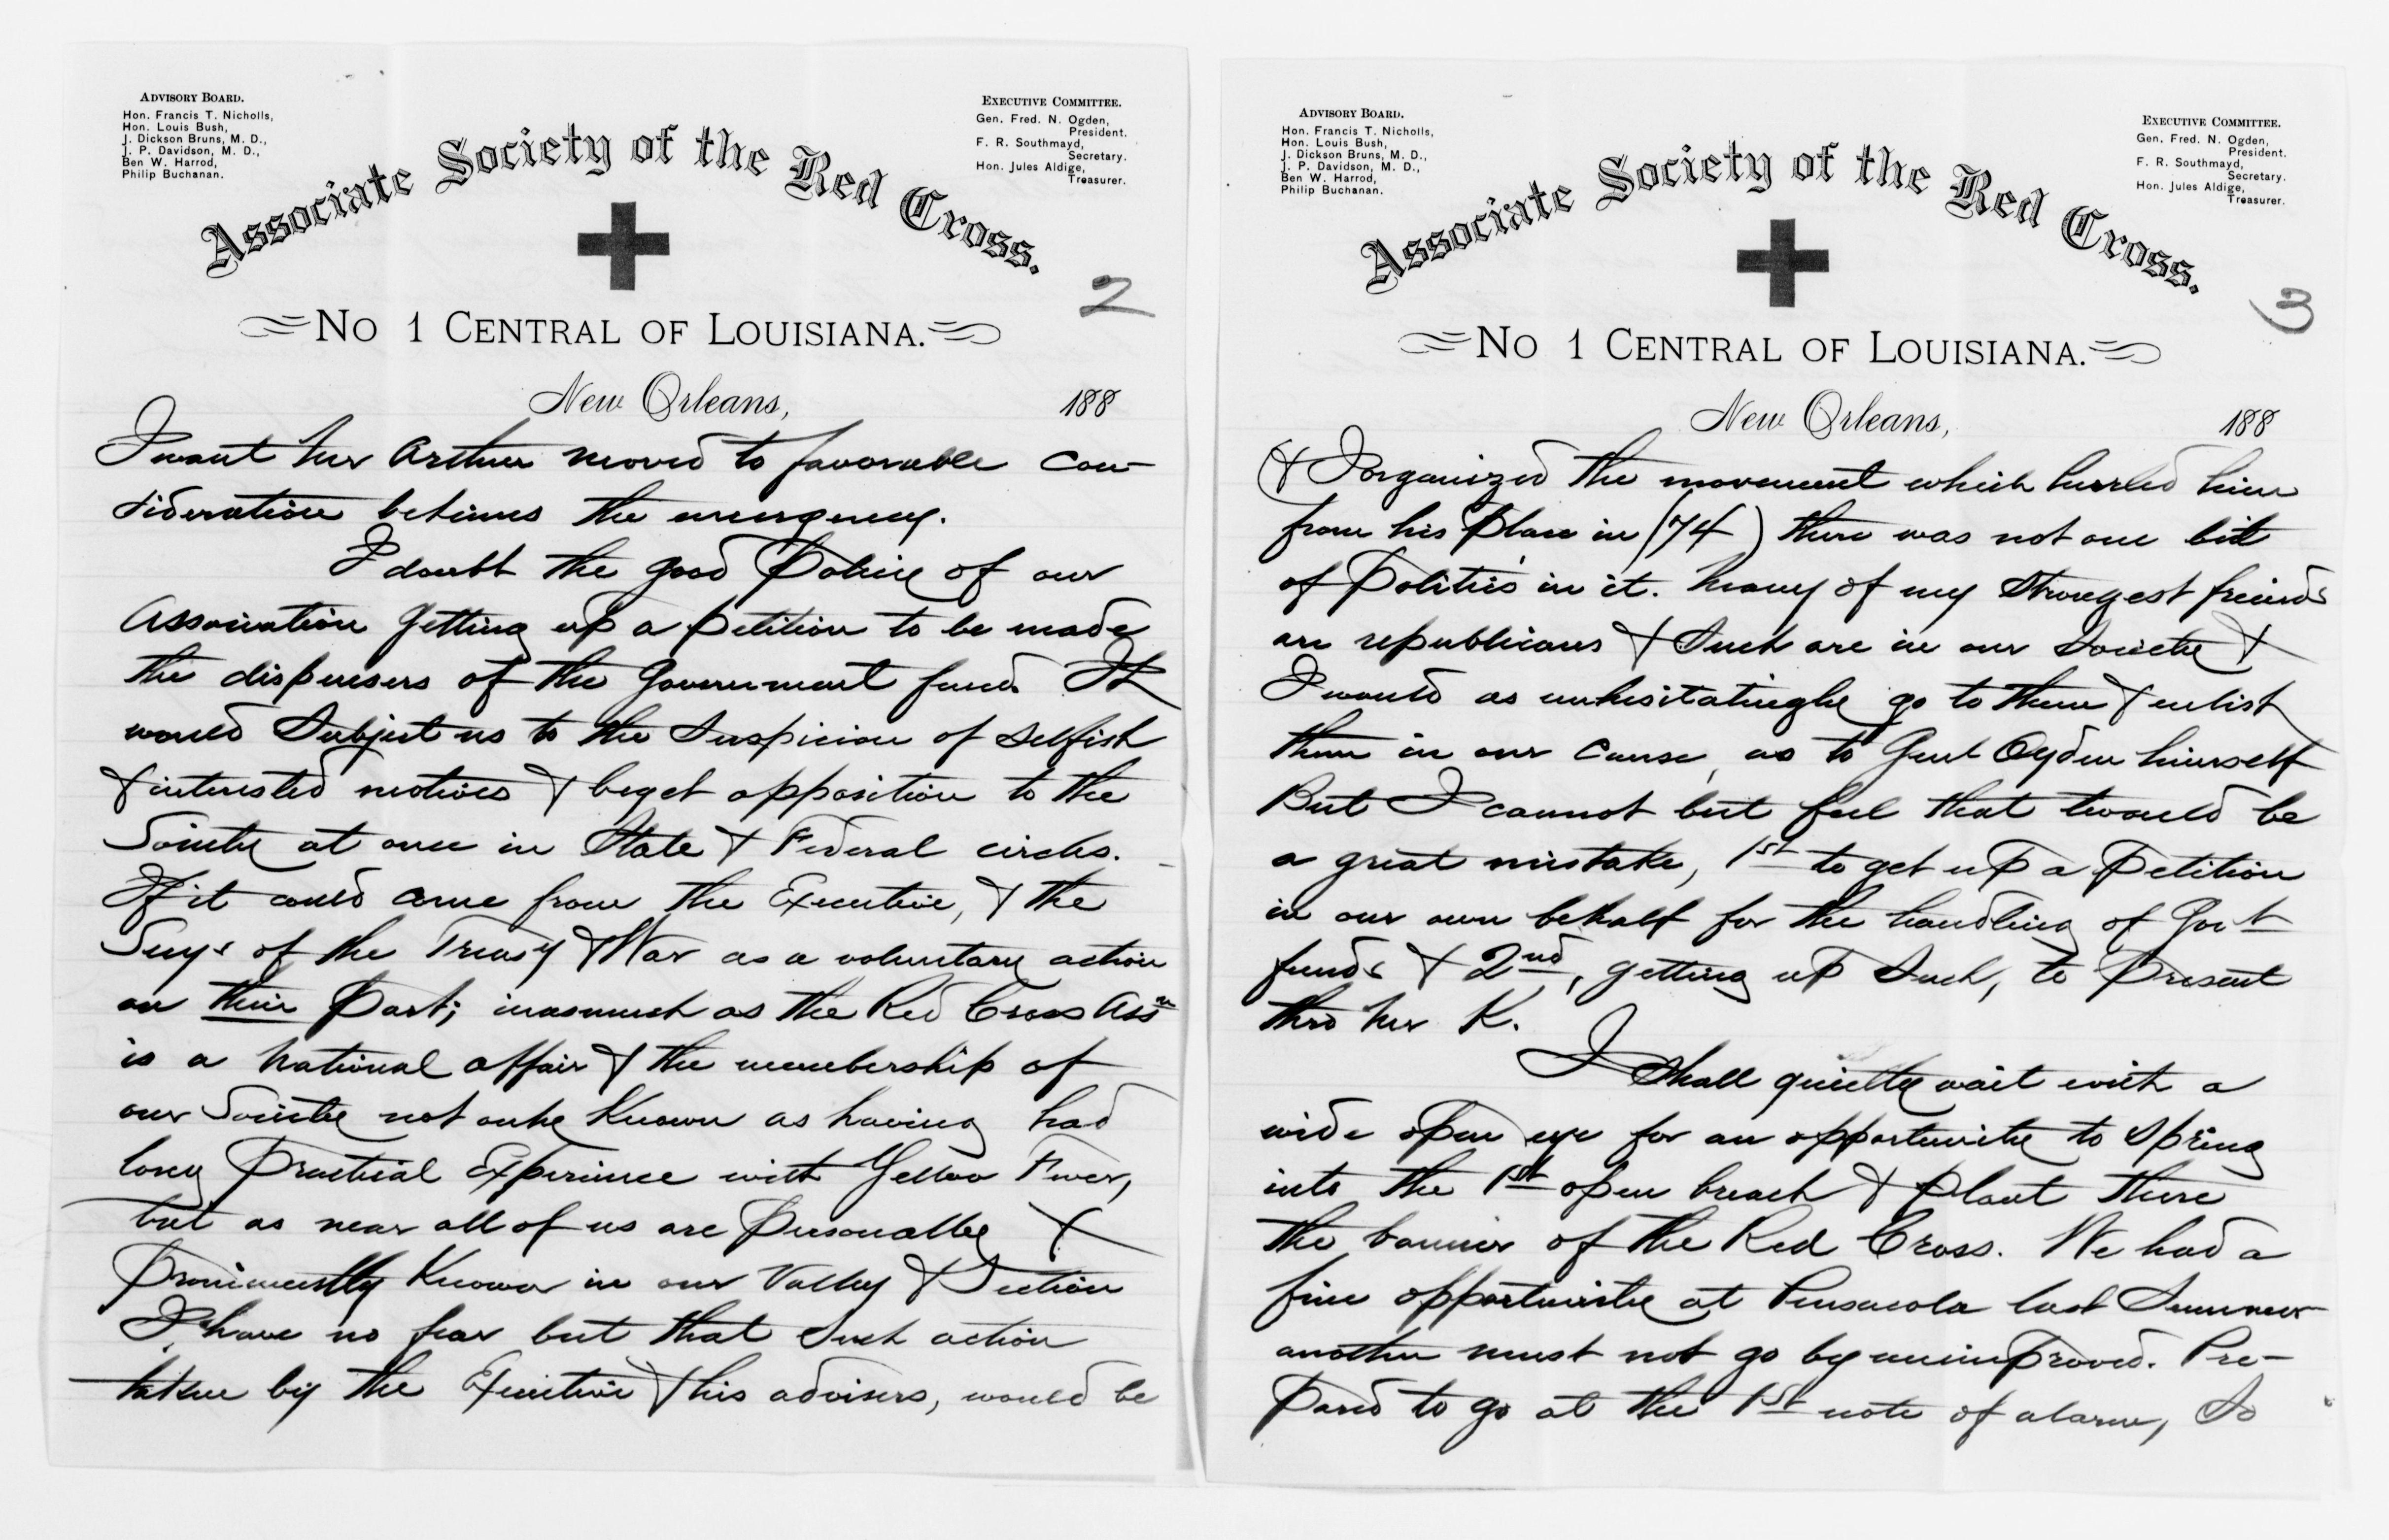 ADVISORY BOARD.
Hon. Francis T. Nicholls,
Hon. Louis Bush,
J. Dickson Bruns, M. D.,
J. P. Davidson, M. D.,
Ben W. Harrod,
Philip Buchanan.
EXECUTIVE COMMITTEE.
Gen. Fred. N. Ogden,
President.
F. R. Southmayd,
Secretary.
Hon. Jules Aldige,
Treasurer.
Associate Society of the Red Cross.
2
No 1 CENTRAL OF LOUISIANA.
New Orleans, 188
I want Mr Arthur moved to favorable con-
sideration betimes the emergency.
I doubt the good Policy of our
Association getting up a petition to be made
the dispensers of the Government fund. It
would Subject us to the Suspicion of selfish
& interested motives & beget opposition to the
Society at once in State & Federal circles.
If it could come from the Executive, & the
Secys of the Treasy & War as a voluntary action
on their Part; inasmuch as the Red Cross Assn
is a National affair & the membership of
our Society not only Known as having had
long Practical Experience with Yellow Fever,
but as near all of us are Personally &
Prominently Known in our Valley & Section
I have no fear but that such action
taken by the Executive & his advisers, would be
ADVISORY BOARD.
Hon. Francis T. Nicholls,
Hon. Louis Bush,
J. Dickson Bruns, M. D.,
J. P. Davidson, M. D.,
Ben W. Harrod,
Philip Buchanan.
EXECUTIVE COMMITTEE.
Gen. Fred. N. Ogden,
President.
F. R. Southmayd,
Secretary.
Hon. Jules Aldige,
Treasurer.
Associate Society of the Red Cross.
3
No 1 CENTRAL OF LOUISIANA.
New Orleans, 188
(& I organized the movement which hurled him
from his Place in /74) there was not one bit
of Politics in it. Many of my Strongest friends
are republicans & Such are in our Society &
I would as unhesitatingly go to them & enlist
them in our cause, as to Genl Ogden himself
But I cannot but feel that twould be
a great mistake, 1st to get up a Petition
in our own behalf for the handling of Govt
funds & 2nd, getting up Such, to Present
thro Mr K.
I Shall quietly wait with a
wide open eye for an opportunity to Spring
into the 1st open breach & Plant there
the banner of the Red Cross. We had a
fine opportunity at Pensacola last Summer
another must not go by unimproved. Pre-
pared to go at the 1st note of alarm, So